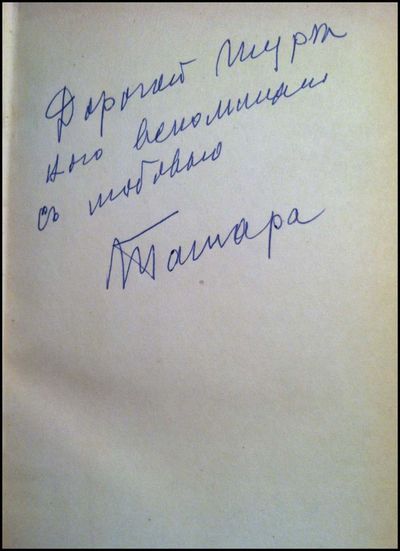 Дорогой Шурѣ
кого вспоминаю
съ любовью
Тамара